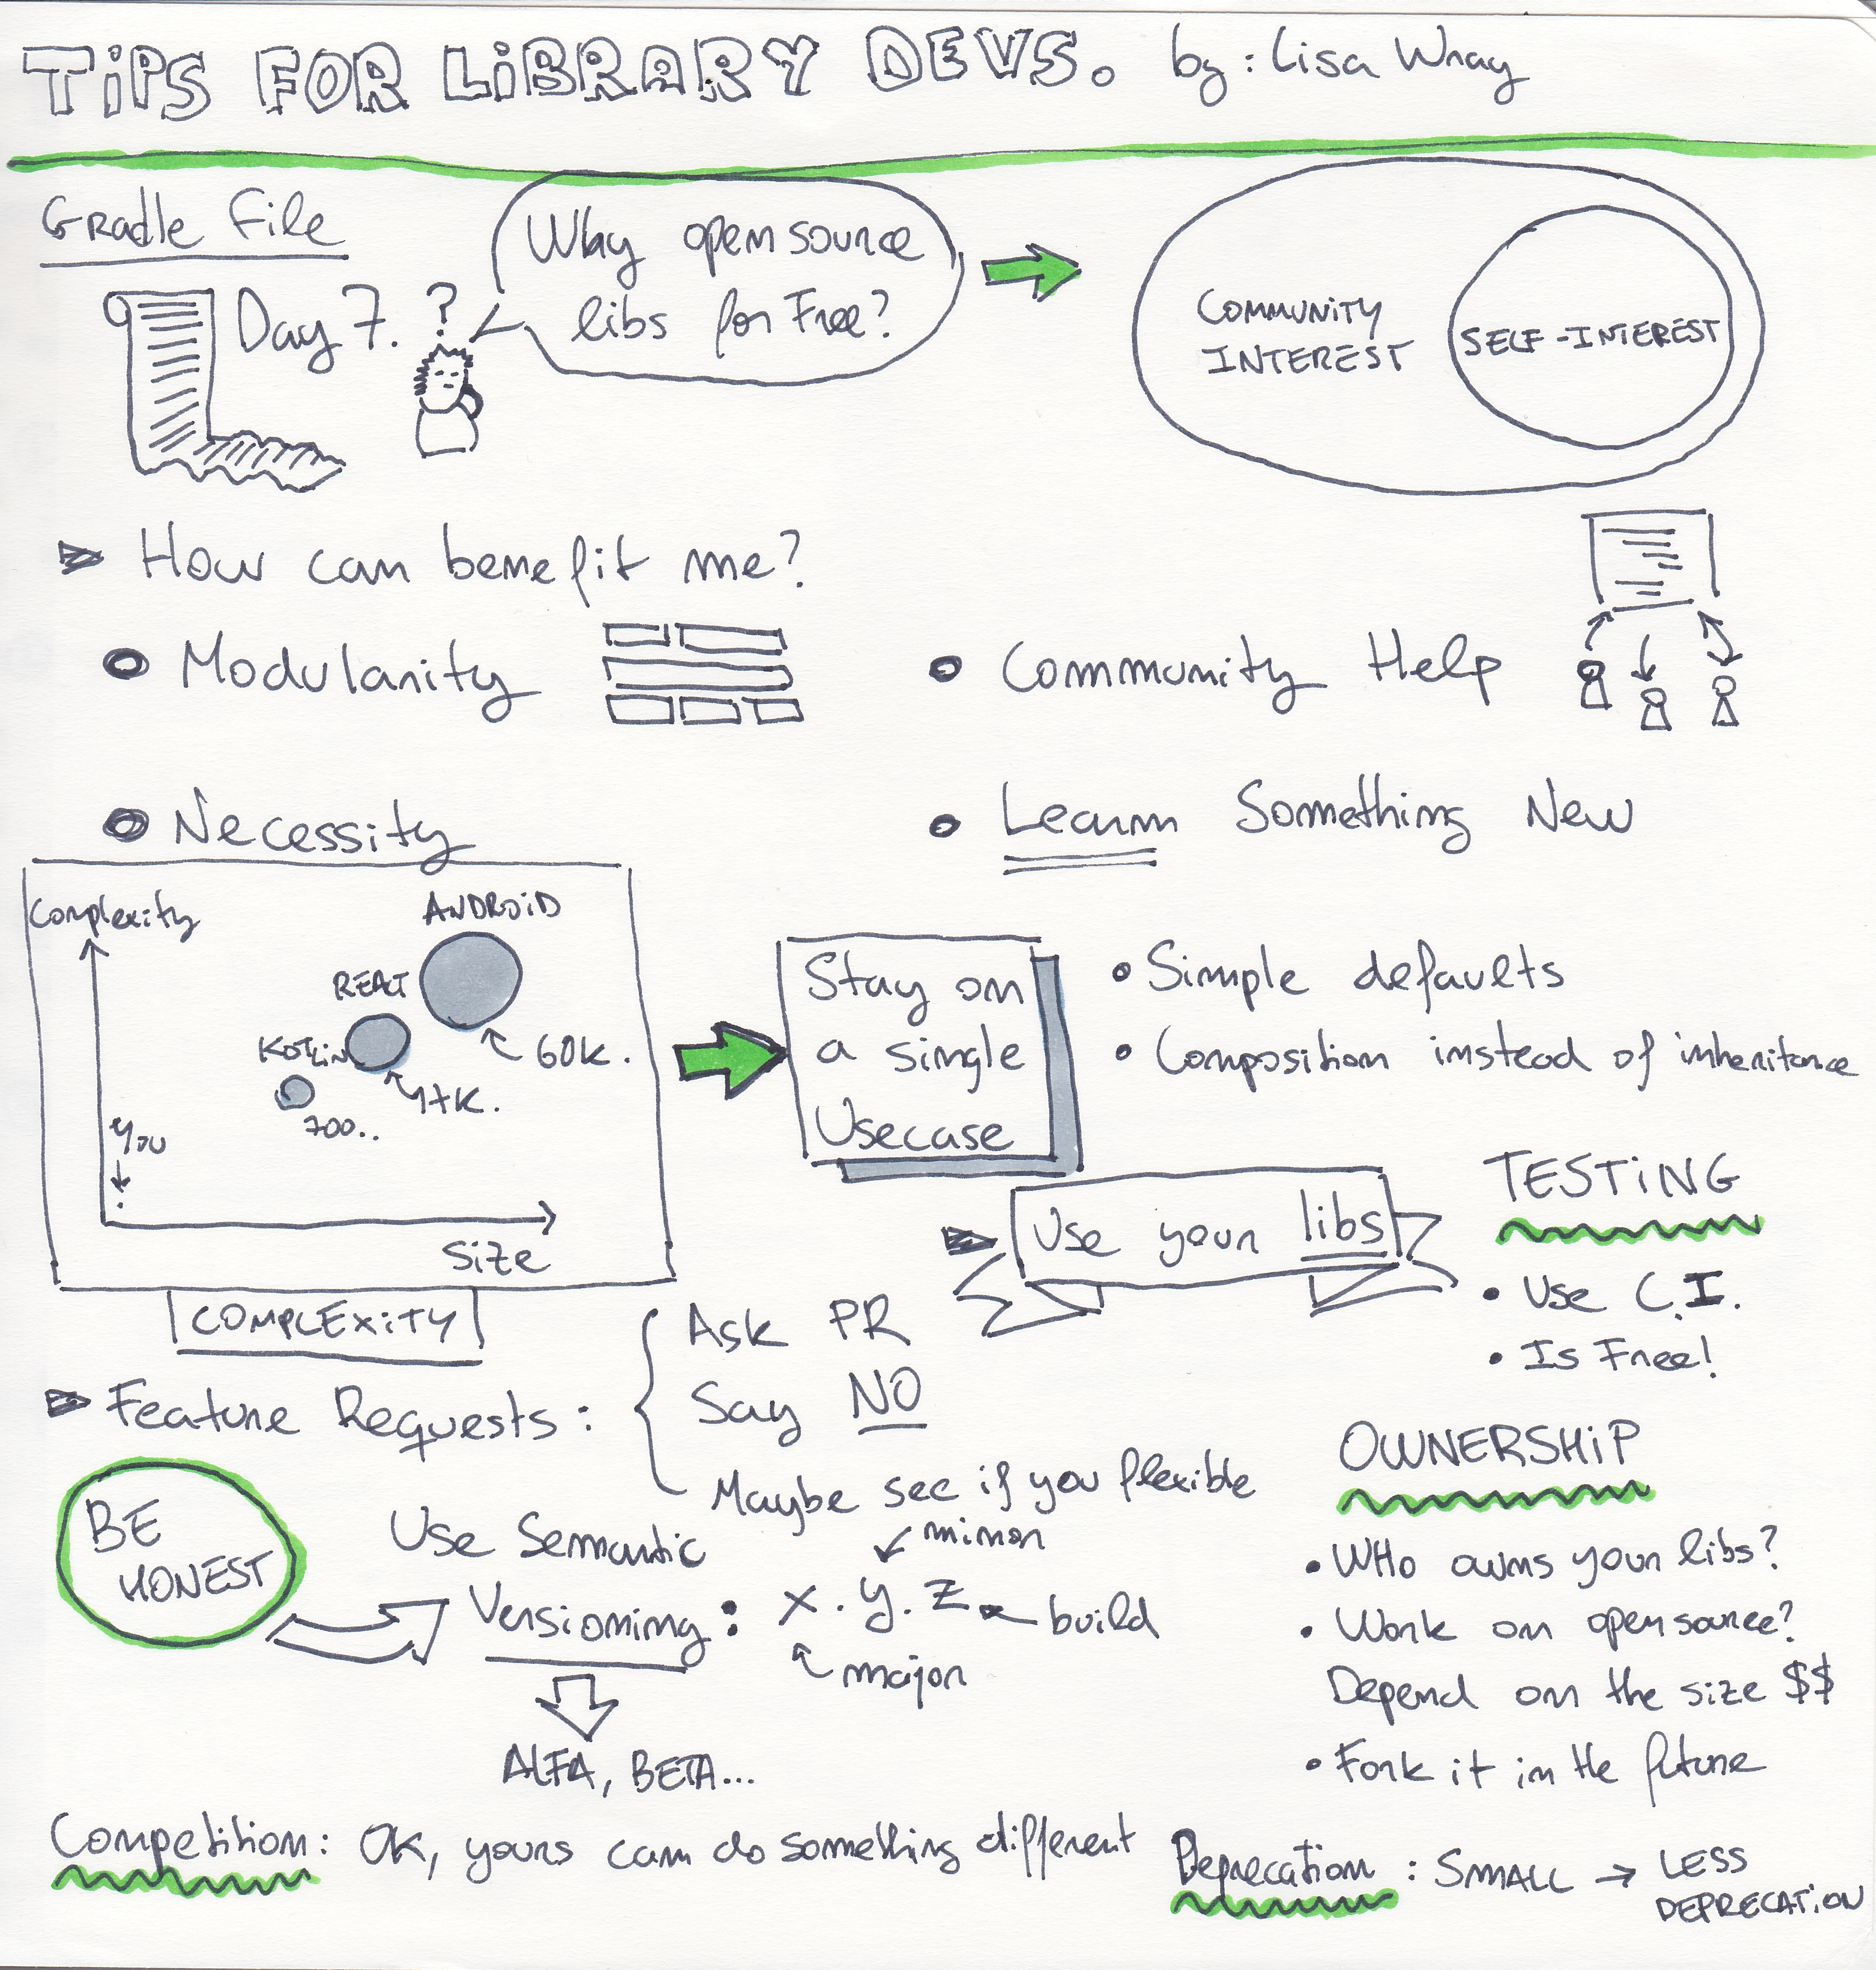 TiPS FOR LiBRARY DEVS. by: Lisa Wray
Gradle File
Day 7.
?
Why open source
libs for Free?
COMMUNITY
INTEREST
SELF-INTEREST
How can benefit me?
Modularity
Community Help
Necessity
Learn Something New
Complexity
ANDROiD
REACT
KOTLiN
60K.
17K.
700..
you
Size
COMPLEXiTY
Stay on
a single
Usecase
Simple defaults
Composition instead of inheritance
Use your libs
TESTiNG
Use C.I.
Is Free!
Feature Requests:
Ask PR
Say NO
Maybe see if you flexible
BE
HONEST
Use Semantic
Versioning: x.y.z
minor
build
major
ALFA, BETA...
OWNERSHiP
WHo owns your libs?
Work on open source?
Depend on the size $$
Fork it in the future
Competition: OK, yours can do something different
Deprecation: SMALL → LESS
DEPRECATiON